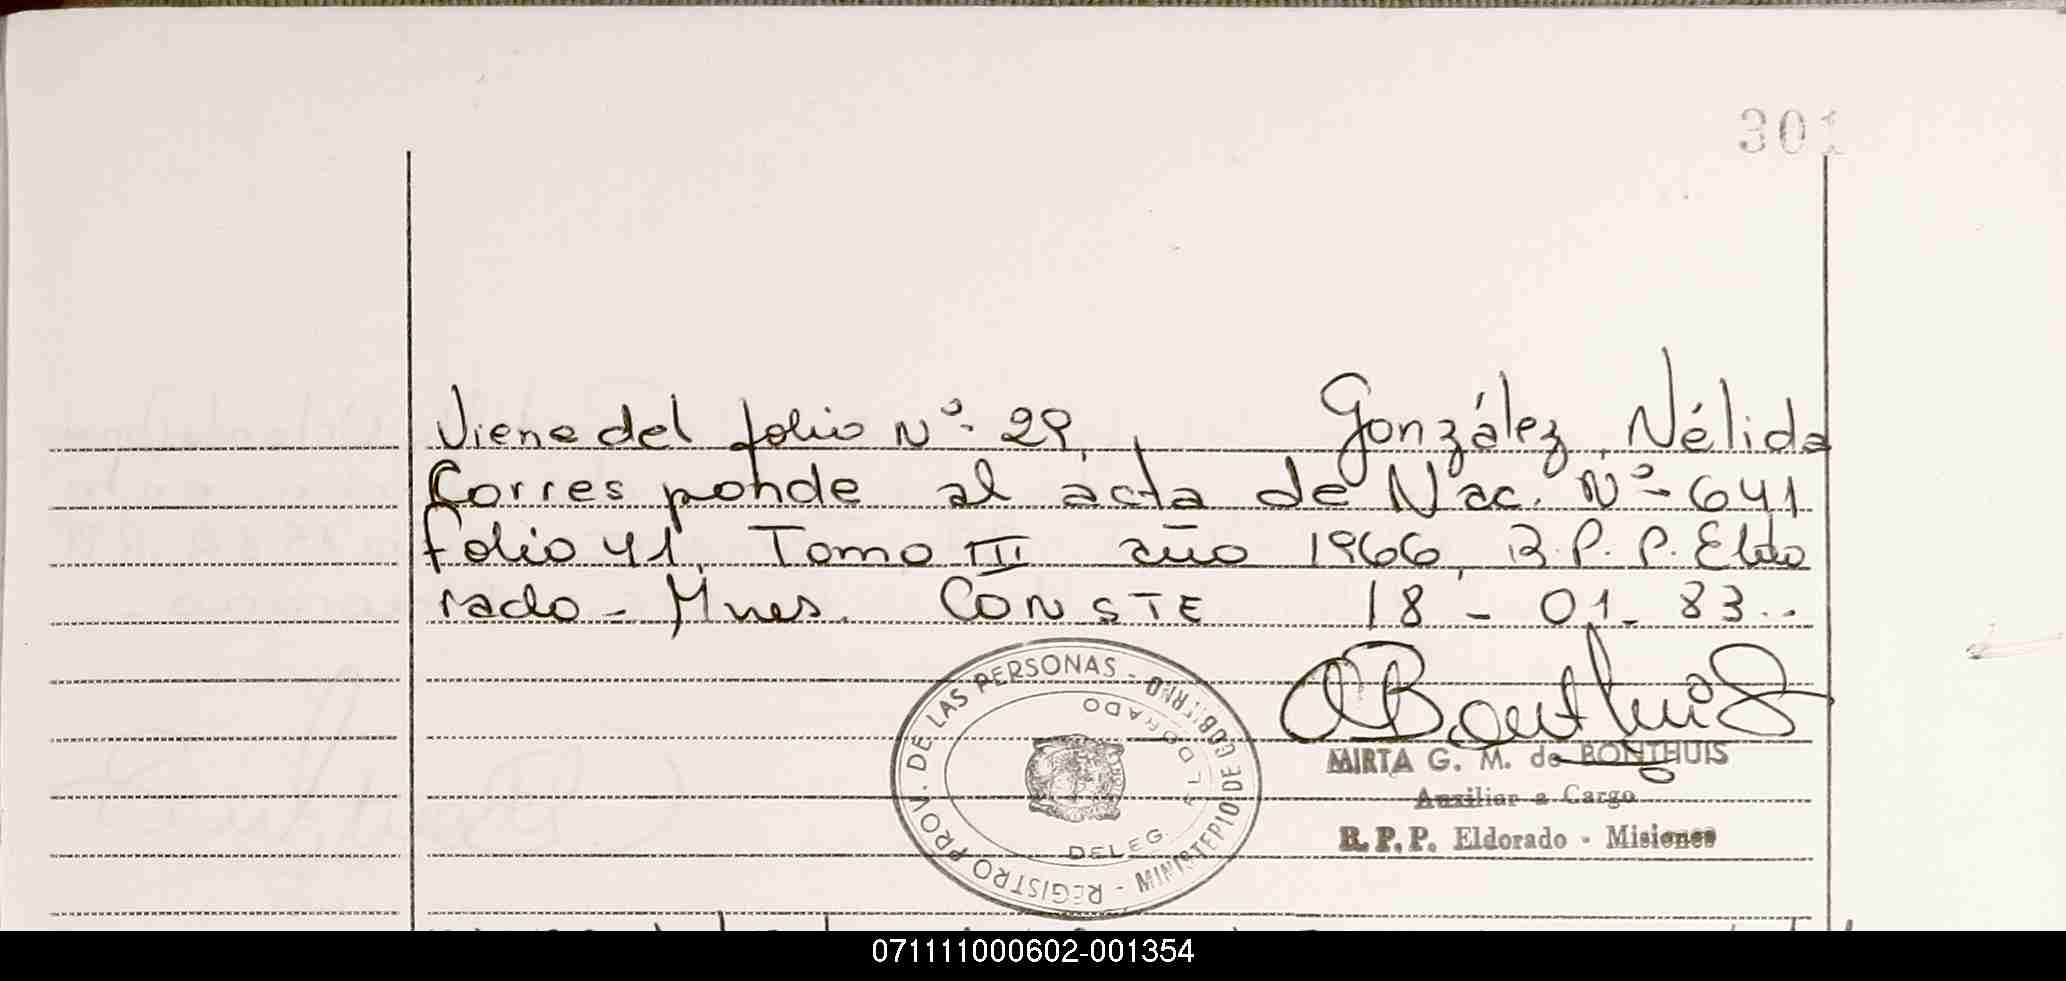 301
Viene del folio Nº 29, González, Nélida
Corresponde al acta de Nac. Nº 641
folio 41, Tomo III año 1966, R.P.P. Eldo
rado - Mnes. CONSTE 18-01-83..
Bonthuis
REGISTRO PROV. DE LAS PERSONAS - MINISTERIO DE GOBIERNO
DELEG. ELDORADO
MIRTA G. M. de BONTHUIS
Auxiliar a Cargo
R.P.P. Eldorado - Misiones
071111000602-001354